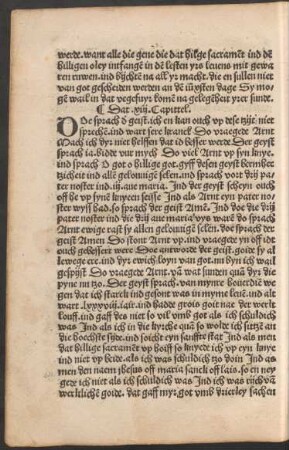 werde. want alle die gene die dat hilge sacramẽt ind dẽ
hilligen oley intfangẽ in dẽ lesten yrs leuens mit gewa
ren ruwen. ind bychtẽ na all yr macht. die en sullen niet
van got gescheiden werden an dẽ iũxsten dage Sy mo
gẽ wail in dat vegefuyr komẽ na gelegẽheit yrer sunde.
¶ Dat .xiij. Capittel.
DOe sprach d geist. ich en kan ouch vp dese zijt niet
sprechẽ. ind wart sere kranck Do vraegede Arnt
Mach ich dyr niet helffen dat id besser werde Der geyst
sprach ia. bidt vur mych Do viel Arnt vp syn knye.
ind sprach O got o hilliger got. gyff desen geyst barmher
tzicheit ind allẽ gelouuigẽ selen. and sprach vort drij pa
ter noster ind .iij. aue maria. Ind der geyst scheyn ouch
off he vp synẽ knyeen seisse Ind als Arnt eyn pater no
ster wyß bad. so sprach der geist Amẽ. Ind doe die drij
pater noster ind die drij aue maria vyß warẽ do sprach
Arnt ewige rast sy allen gelouuigẽ selen. doe sprach der
geist Amen Do stont Arnt vp. ind vraegde yn off idt
ouch gebessert were Doe antworde der geist. goide sy al
lewege ere. ind dyr ewich loyn van got. an dyn ich wail
gespijst Do vraegede Arnt. vã wat sunden quã dyr die
pyne nu tzo. Der geyst sprach. van mynre houerdiẽ we
gen dat ich starck ind gesont was in mymẽ leuẽ. ind alt
wart .lxxxviij. iair. ind hadde grois goit nae der werlt
louff. ind gaff des niet so vil vmb got als ich schuldich
was Ind als ich in die kyrche quã so wolde ich sitzẽ an
die hoechste sijde. ind soicht eyn sanffte stat Ind als mẽ
dat hillige sacramẽt vp hoiff so knyede ich vp eyn knye
ind niet vp beide. als ich was schuldich tzo doin Ind as
men den naem ihesus off maria sanck off lais. so en ney
gede ich niet als ich schuldich was Ind ich was rijch vã
werltlichẽ goide. dat gaff myr got vmb vierley sachen